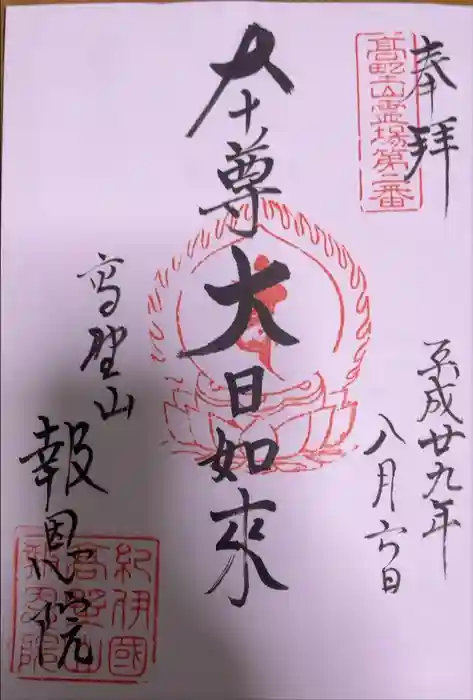 奉拝
高野山霊場第二番
平成廿九年
八月六日
本尊大日如来
高野山
報恩院
紀伊國
高野山
報恩院